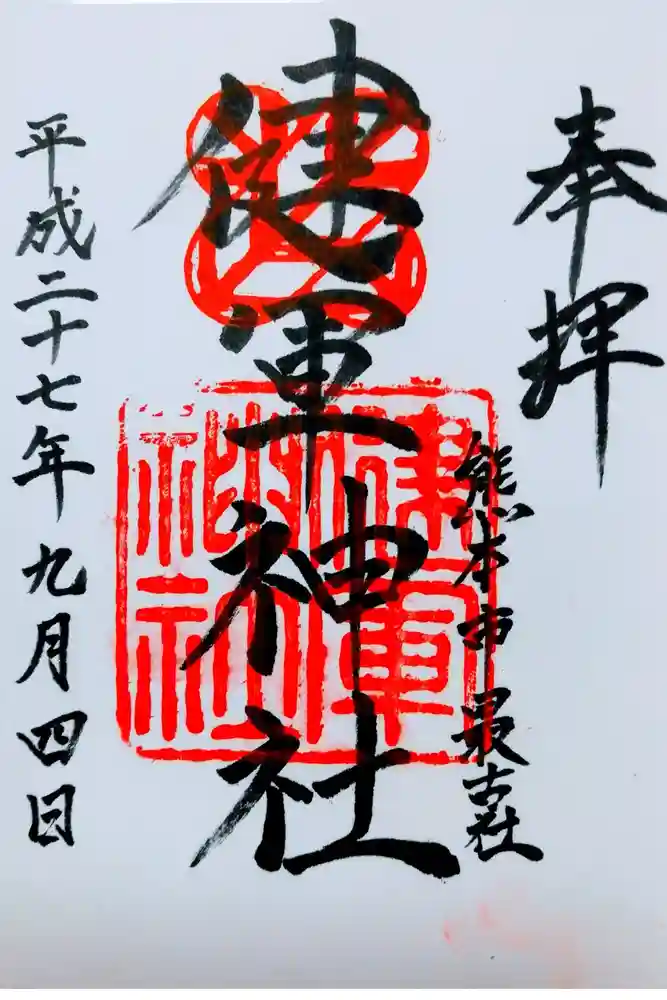 奉拝
熊本市 最古社
健軍神社
健軍神社
平成二十七年九月四日